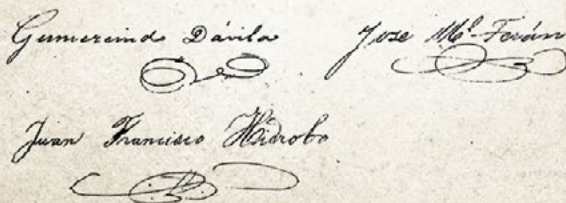 Gumercindo Dávila José Mª Terán
Juan Francisco Hidrobo